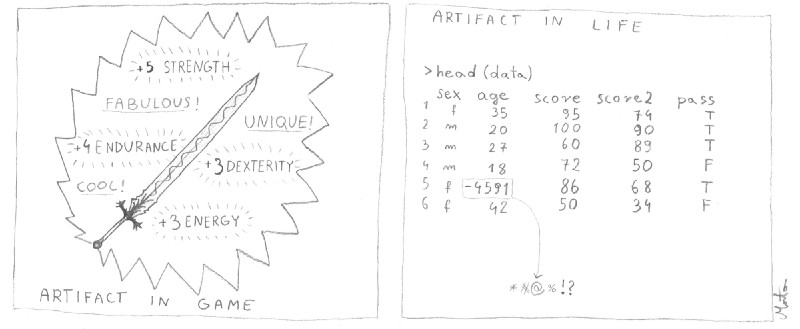 +5 STRENGTH
FABULOUS!
UNIQUE!
+4 ENDURANCE
+3 DEXTERITY
COOL!
+3 ENERGY
ARTIFACT IN GAME
ARTIFACT IN LIFE
>head (data)
sex age score score2 pass
1 f 35 95 74 T
2 m 20 100 90 T
3 m 27 60 89 T
4 m 18 72 50 F
5 f -4591 86 68 T
6 f 42 50 34 F
*%@%!?